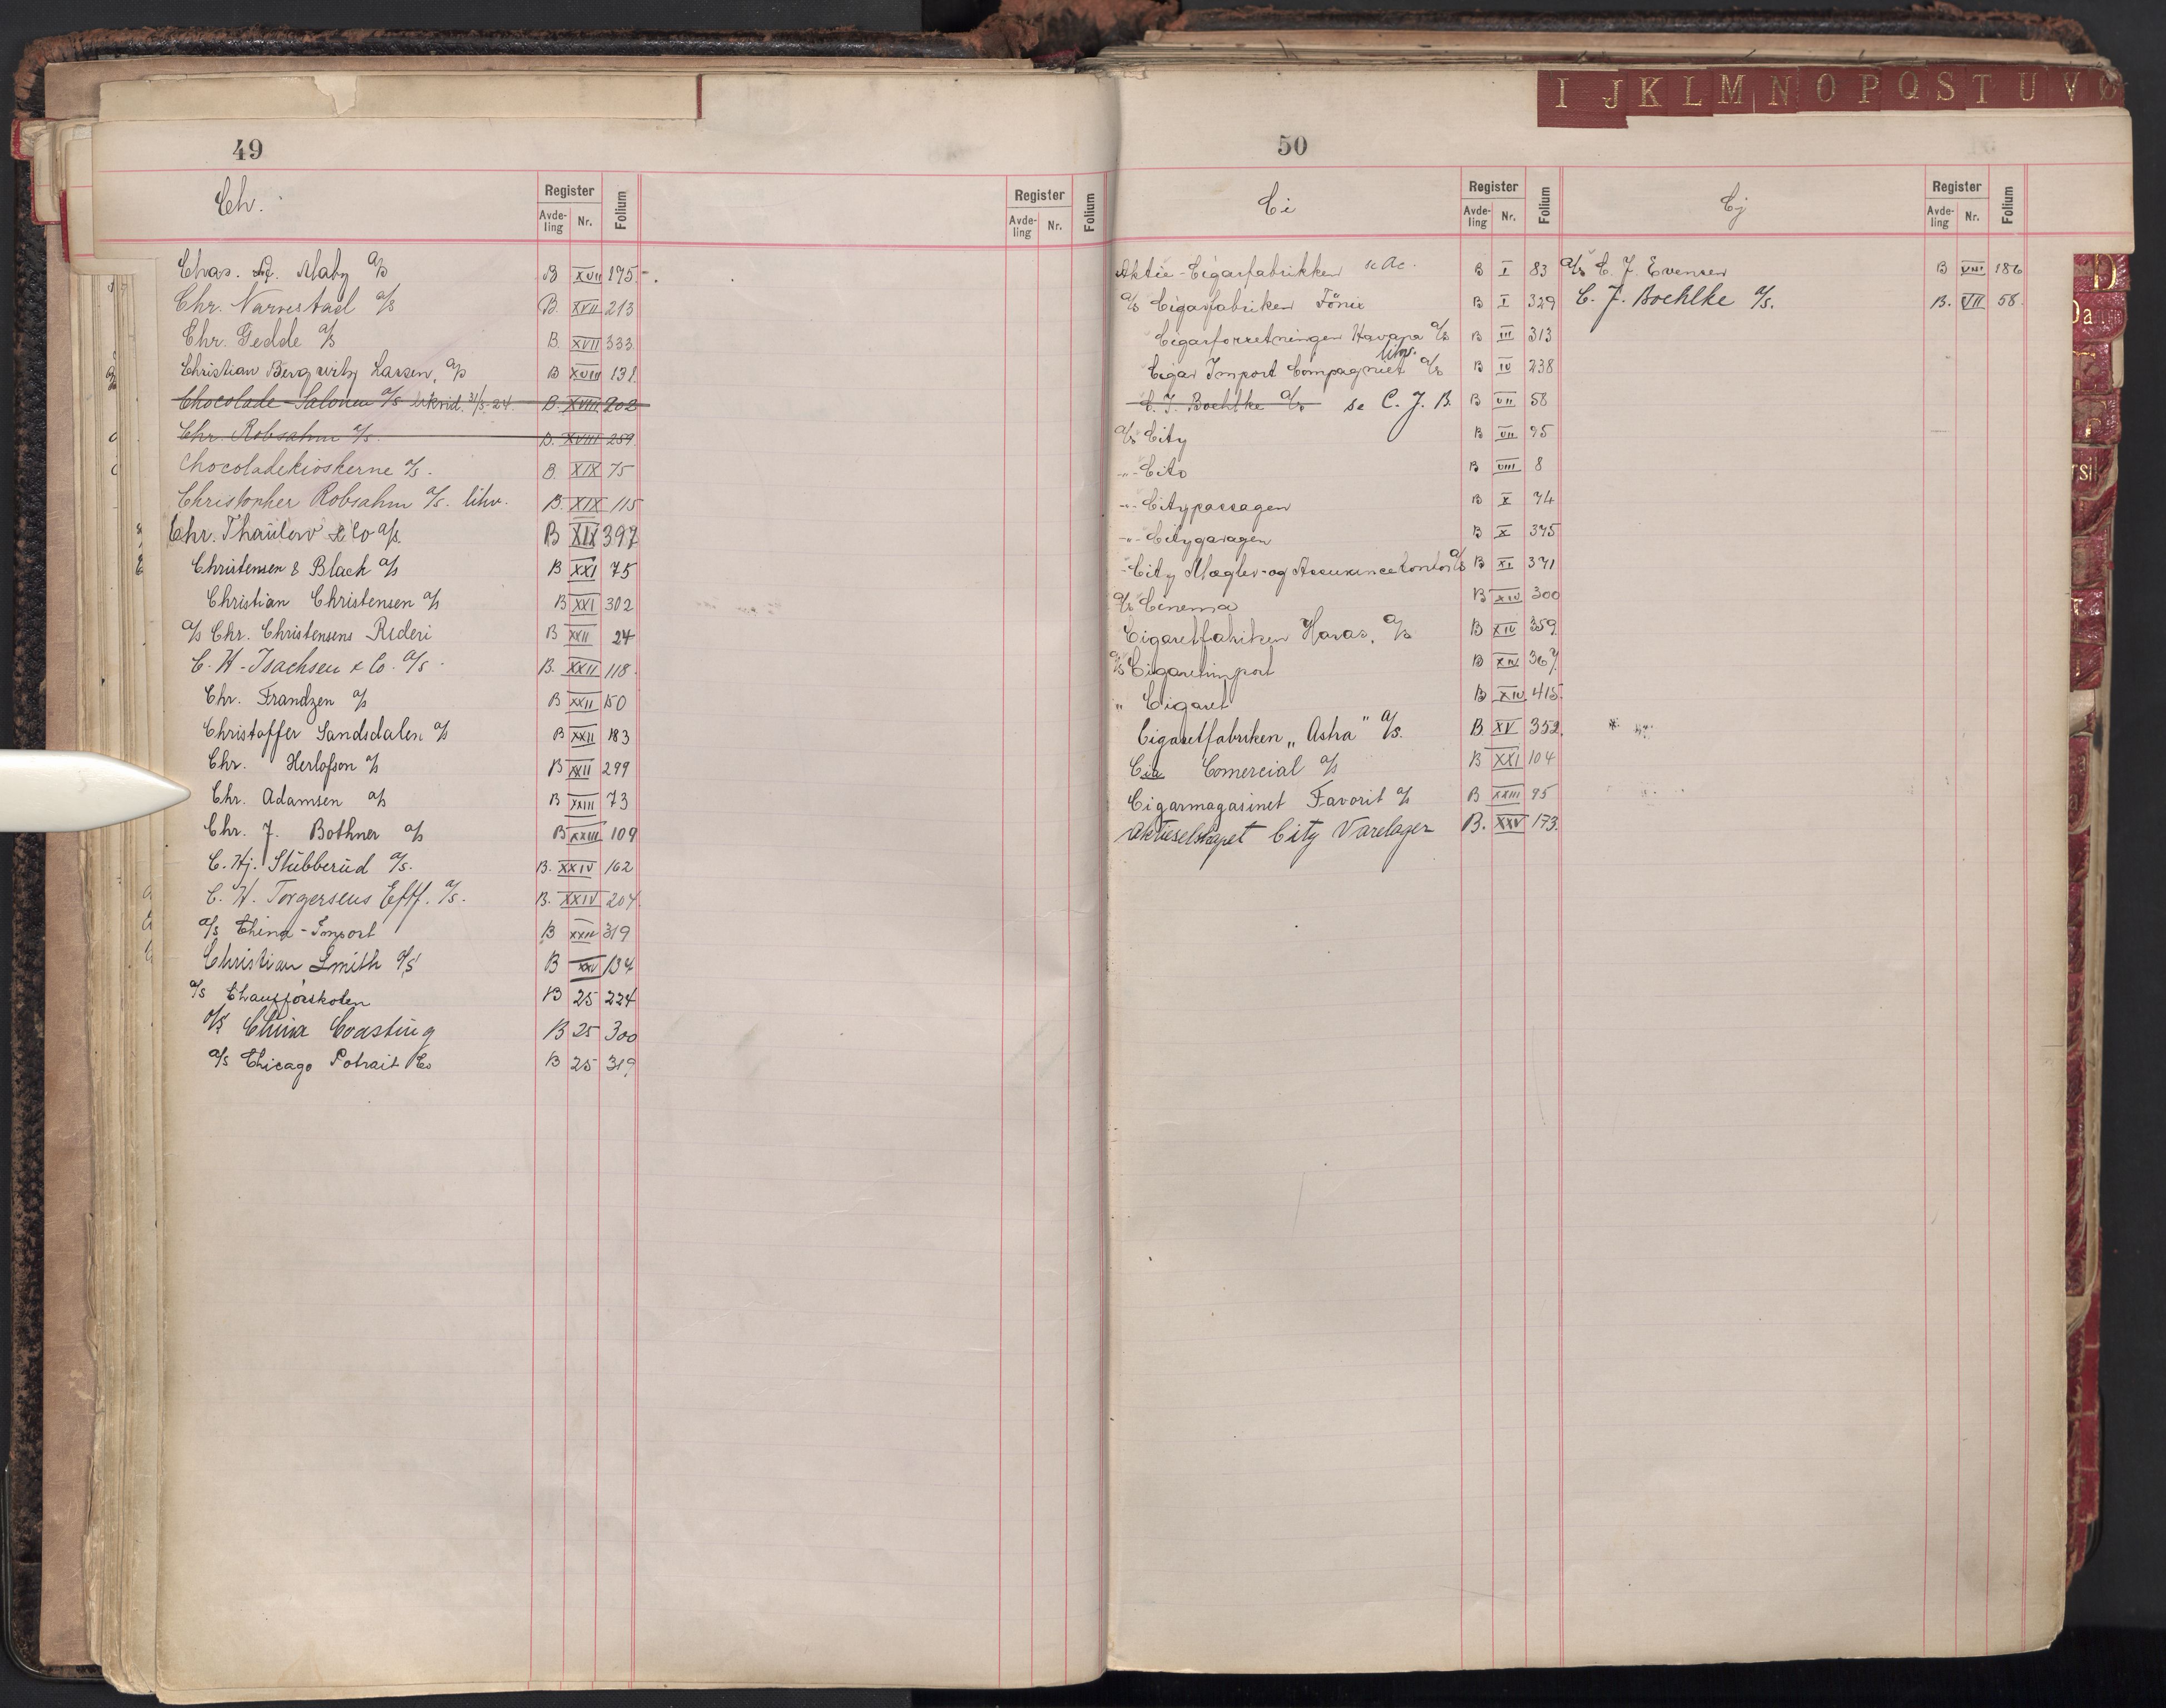 I J K L M N O P Q S T U V Ø
49
Ch.
Register
Avde-ling Nr. Folium
Register
Avde-ling Nr. Folium
Chas. Maby A/S B XVII 175
Chr. Narvestad A/S B. XVII 213
Chr. Gedde A/S B. XVII 333
Christian Bergwitz Larsen, A/S B XVIII 131
Chocolade-Salonen A/S likvid. 31/5-24. B. XVIII 202
Chr. Robsahm A/S. B. XVIII 259
Chocoladekioskerne A/S. B. XIX 75
Christopher Robsahm A/S. likv. B. XIX 115
Chr. Thaulow & Co A/S. B XIX 397
Christensen & Black A/S B XXI 75
Christian Christensen A/S B XXI 302
A/S Chr. Christensens Rederi B XXII 24
C. H. Isachsen & Co. A/S. B. XXII 118.
Chr. Frandzen A/S B XXII 150
Christoffer Sandsdalen A/S B XXII 183
Chr. Herlofson A/S B XXII 299
Chr. Adamsen A/S B XXIII 73
Chr. J. Bothner A/S B XXIII 109
C. Hj. Stubberud A/S. B. XXIV 162
C. H. Torgersens Eftf. A/S. B. XXIV 204.
A/S China-Import B XXIV 319
Christian Smith A/S B XXV 134
A/S Chaufförskolen B 25 224
A/S China Coasting B 25 300
A/S Chicago Potrait Co B 25 319
50
Ci
Register
Avde-ling Nr. Folium
Cj
Register
Avde-ling Nr. Folium
Aktie-Cigarfabrikken se Ac. B I 83
A/S Cigarfabriken Fönix B I 329
Cigarforretningen Havana A/S B III 313
likv.
Cigar Import Compagniet A/S B IV 238
C. J. Boehlke A/S se C. J. B. B VII 58
A/S City B VII 95
-"- Cito B VIII 8
-"- Citypassagen B X 74
-"- Citygaragen B X 375
City Mægler- og Assurancekontor A/S B XI 371
A/S Cinema B XIV 300
Cigaretfabriken Havas, A/S B XIV 359.
A/S Cigaretimport B XIV 367.
" Cigaret B XIV 415.
Cigaretfabriken "Astra" A/S. B. XV 352.
Cia Comercial A/S B XXI 104
Cigarmagasinet Favorit A/S B XXIII 95
Aktieselskapet City Varelager B. XXV 173.
A/S C. J. Evensen B VIII 186
C. J. Boehlke A/S. B. VII 58.
D